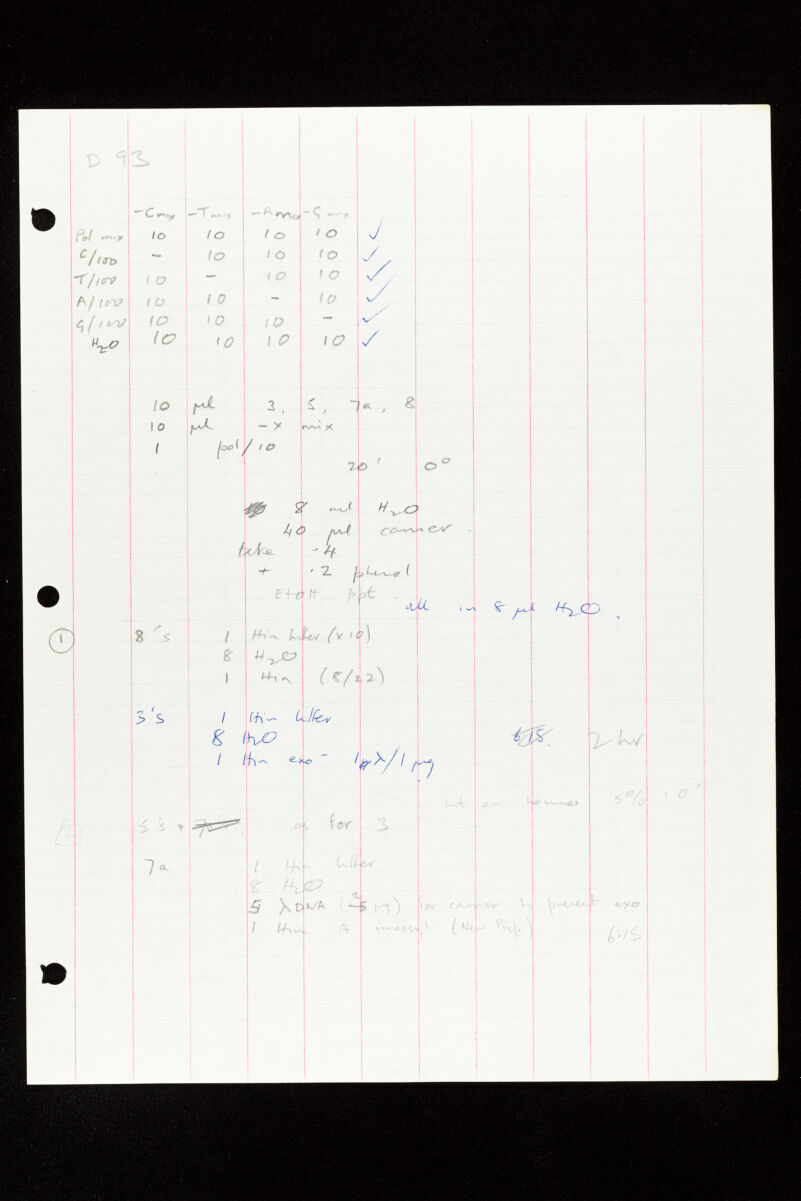 D 93
-C mix -T mix -A mix -G mix
Pol mix 10 10 10 10 ✓
C/100 - 10 10 10 ✓
T/100 10 - 10 10 ✓
A/100 10 10 - 10 ✓
G/100 10 10 10 - ✓
H2O 10 10 10 10 ✓
10 µl 3, 5, 7a, 8
10 µl -x mix
1 pol/10
20' 0°
8 ml H2O
40 µl carrier.
take .4
+ .2 phenol
EtOH ppt.
all in 8 µl H2O.
① 8's 1 Hin buffer (x10)
8 H2O
1 Hin (8/22)
3's 1 Hin buffer
8 H2O 6.15. 2 hr
1 Hin exo- 1 λ/1 µg
on 5% . 0'
② 5's + 7 as for 3
7a 1 Hin buffer
8 H2O
5 λ DNA (2 µg) for carrier to prevent exo
1 Hin A (New Prep) 6.15